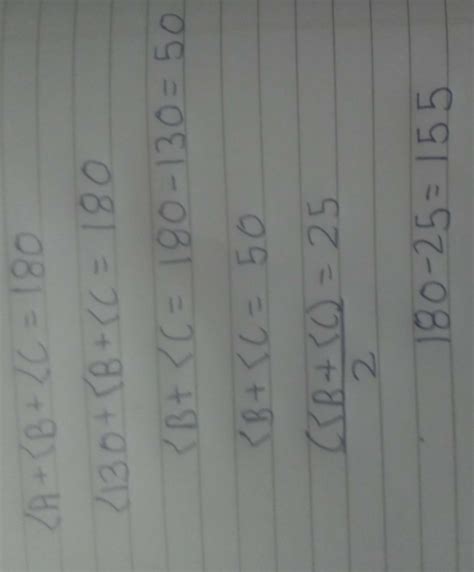 <A + <B + <C = 180
<130 + <B + <C = 180
<B + <C = 180 - 130 = 50
<B + <C = 50
(<B + <C) = 25
2
180 - 25 = 155